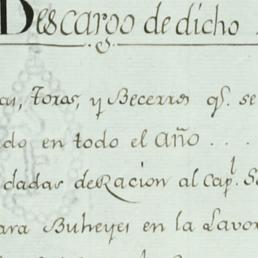 Descargo de dicho
as, Toras, y Becerros q.e se
do en todo el año . . .
dadas de Racion al Cap.l S
ara Bueyes en la Lavo